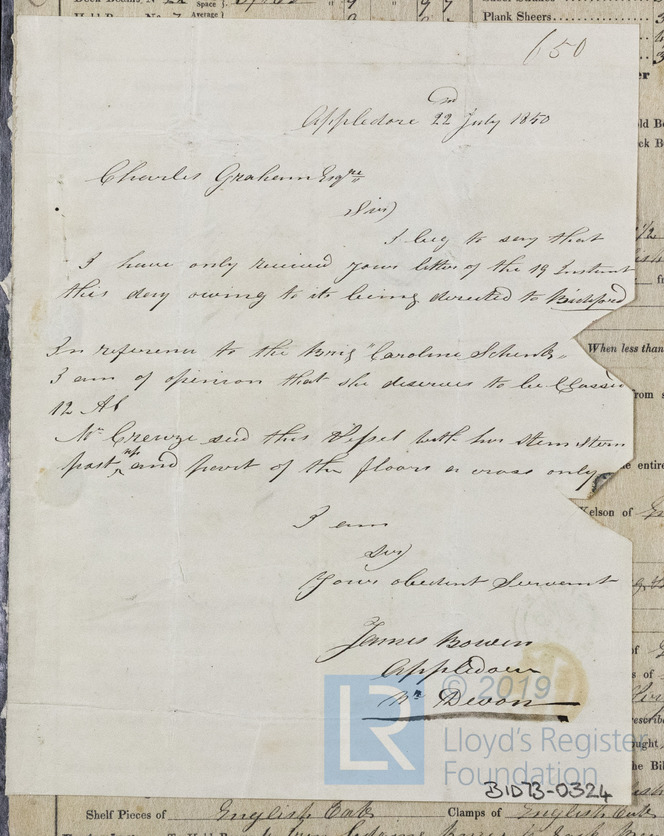 Space
Average
Plank Sheers
650
Appledore 22nd July 1850
Charles Graham Esqre
Sir
I beg to say that
I have only received yours letter of the 19 Instant
this day owing to its being directed to Biddeford
When less than
In reference to the Brig "Caroline Schenk"
I am of opinion that she deserves to be Class'd
12 A1
Mr Creuze seed this Vessel with her stem stern
post up and part of the floors a cross only
Kelson of
I am
Sir
Your obedient Servant
James Bowen
Appledore
Nh Devon
© 2019
LR
Lloyd's Register
Foundation
BID73-0324
Shelf Pieces of English Oak Clamps of English Oak